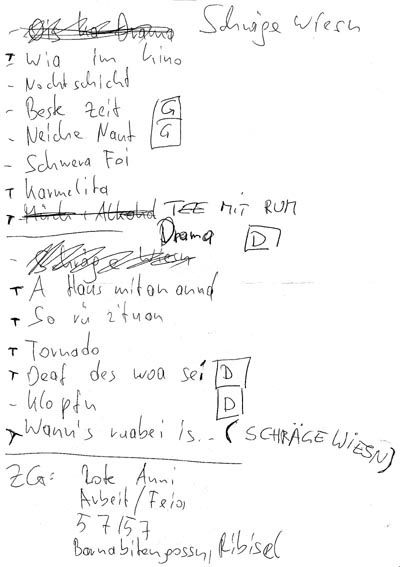 Schräge Wiesn
T Wia im Kino
- Nochtschicht
- Beste Zeit G
- Neiche Naut G
- Schwera Foi
T Karmelita
T TEE MIT RUM
Drama D
T A Haus mitanannd
T So vü z'tuan
T Tornado
T Deaf des woa sei D
- Klopfn D
T Wann's vuabei is.. (SCHRÄGE WIESN)
ZG: Rote Anni
Arbeit / Feia
57157
Barnabitengossn, Ribisel